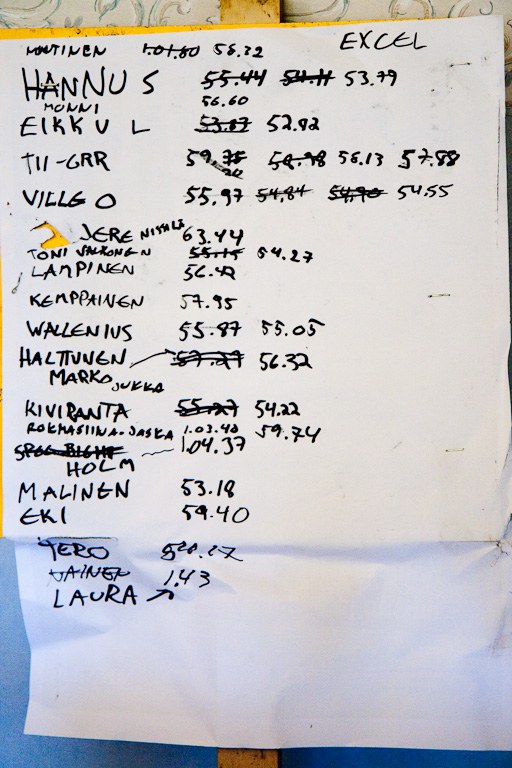 EXCEL
MARTINEN 1.01.60 56.32
HANNU S 55.44 54.11 53.79
MONNI 56.60
EIKKU L 53.87 52.82
TII-GRR 59.75 58.98 56.13 57.88
VILLE O 55.97 54.84 54.90 54.55
JERE 63.44
TONI 55.15 54.27
LAMPINEN 56.42
KEMPPAINEN 57.95
WALLENIUS 55.87 55.05
HALTTUNEN 57.27 56.32
MARKO JUKKA
KIVIRANTA 55.27 54.22
JASKA 1.03.40 59.74
1.04.37
HOLM
MALINEN 53.18
EKI 59.40
TERO
VAINEN 1.43
LAURA